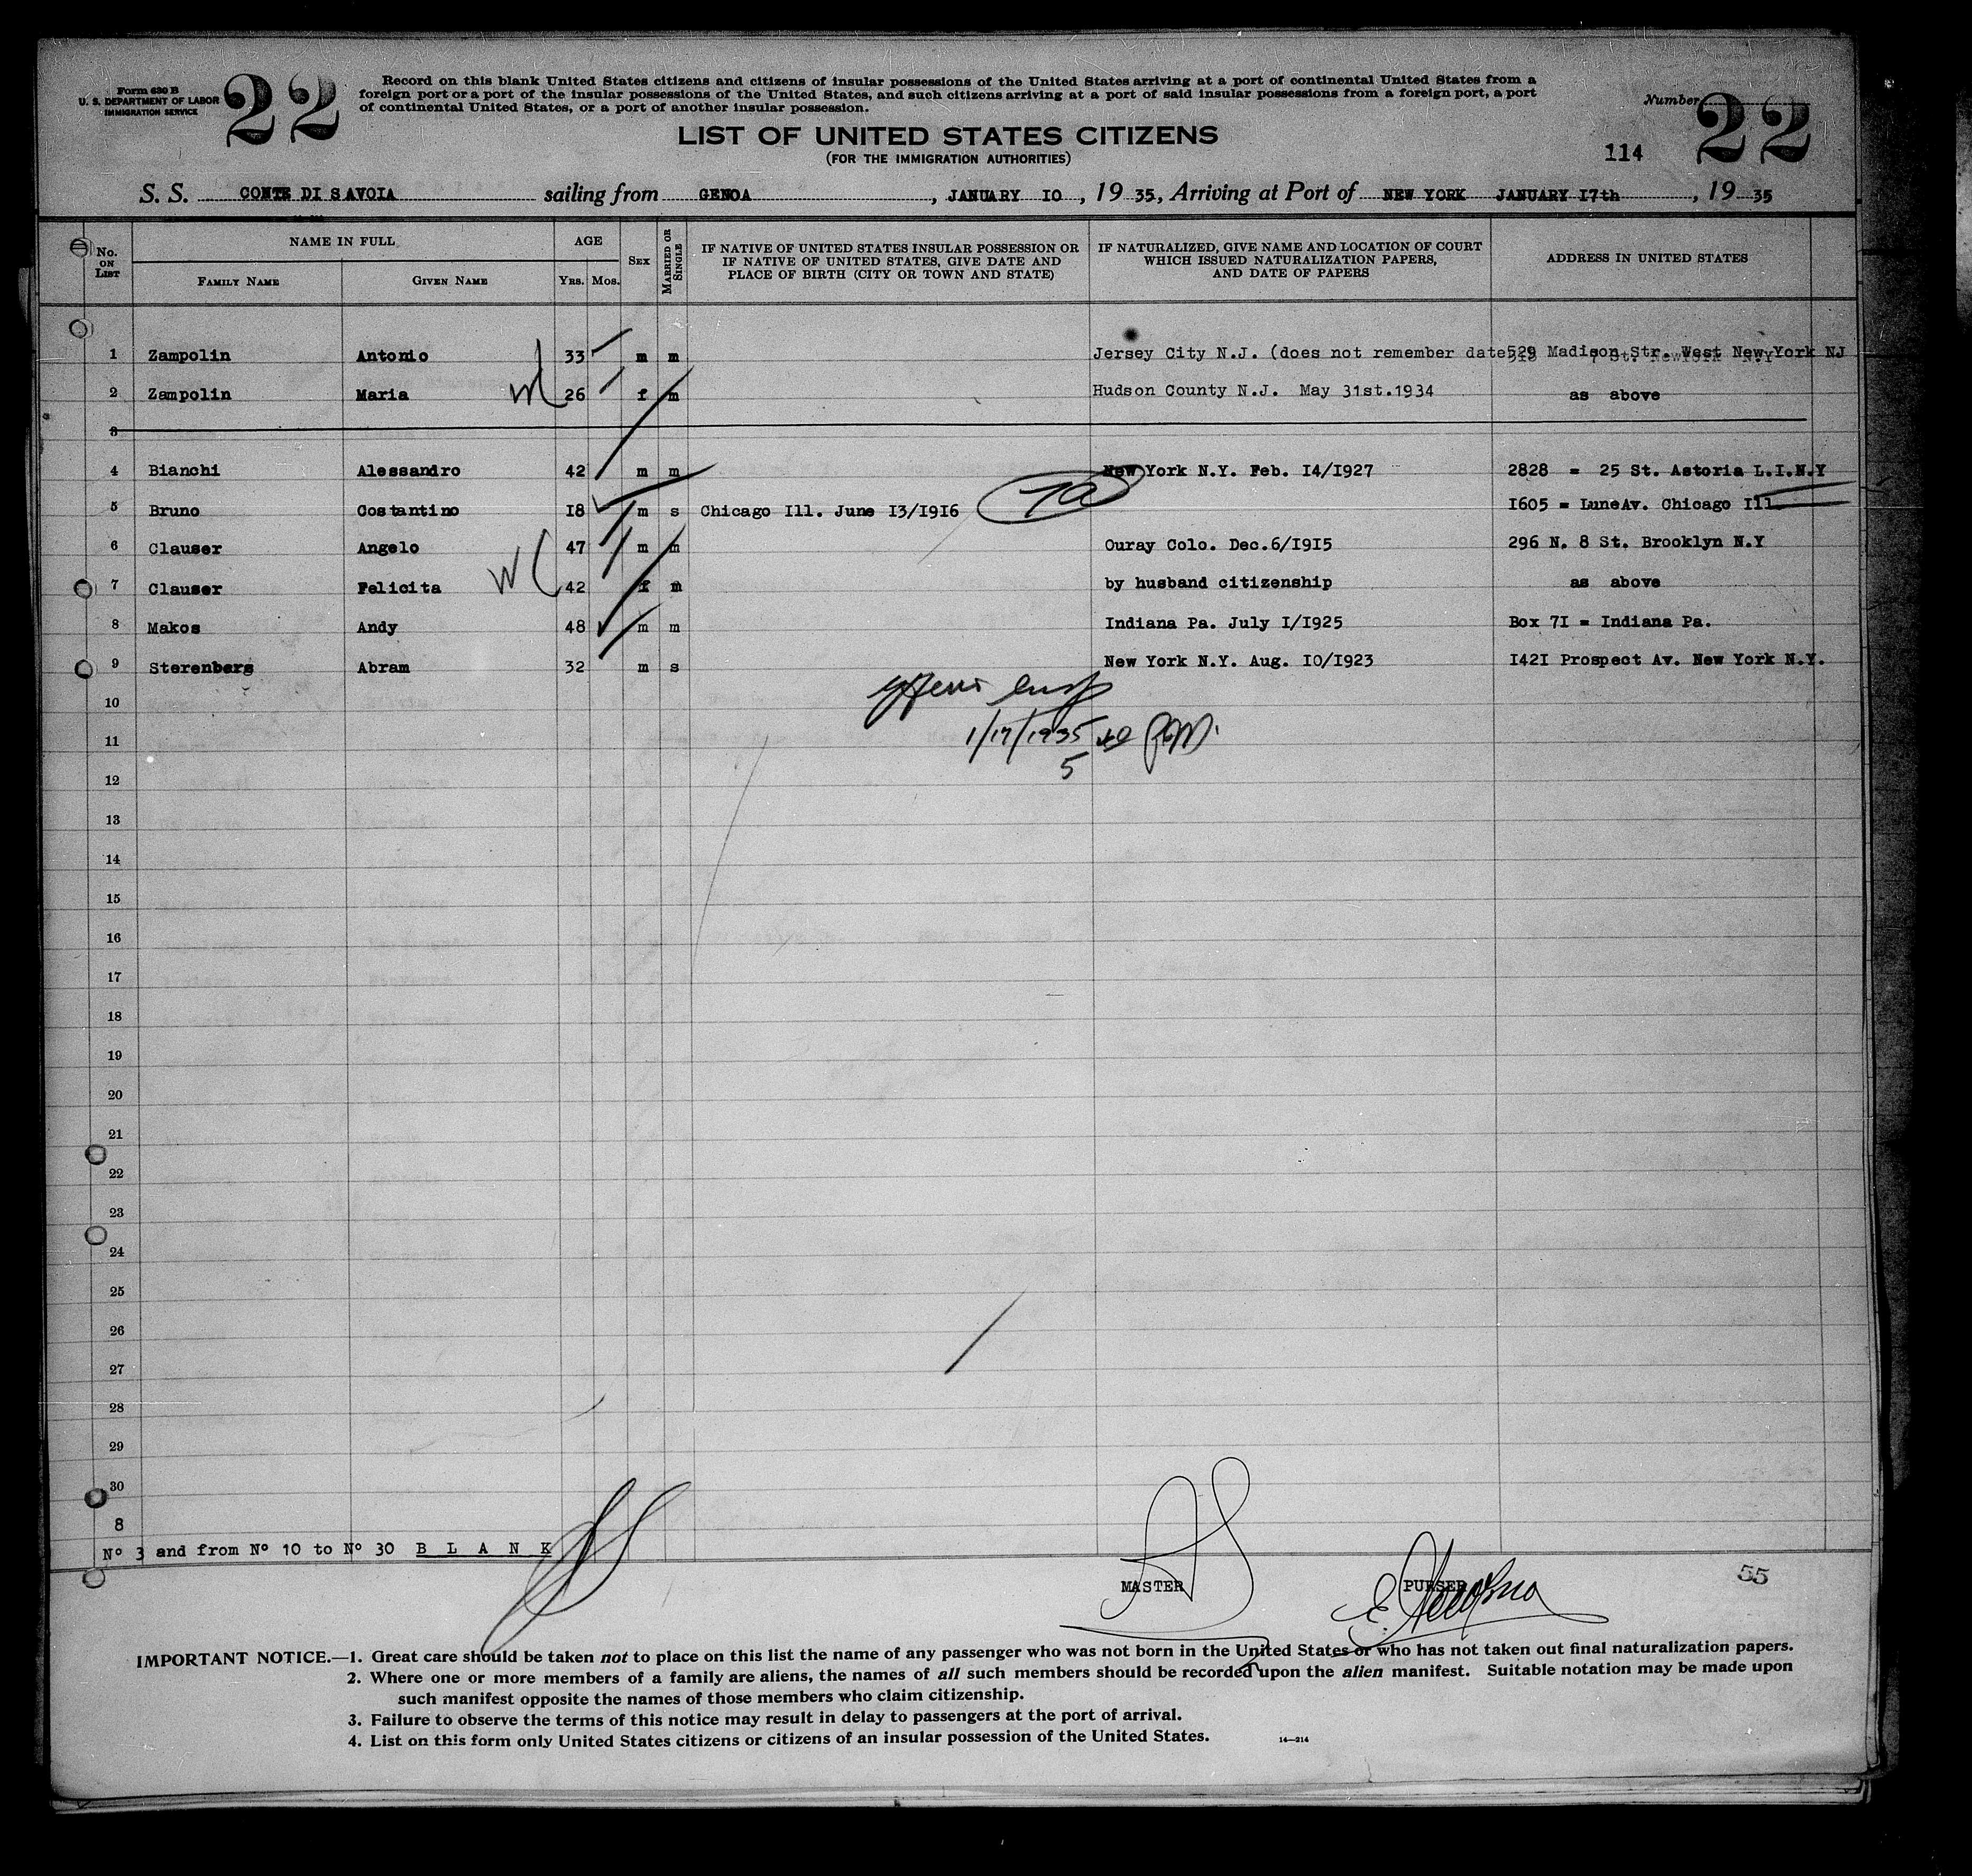 Form 630 B
U. S. DEPARTMENT OF LABOR
IMMIGRATION SERVICE
22
Record on this blank United States citizens and citizens of insular possessions of the United States arriving at a port of continental United States from a
foreign port or a port of the insular possessions of the United States, and such citizens arriving at a port of said insular possessions from a foreign port, a port
of continental United States, or a port of another insular possession.
Number 22
LIST OF UNITED STATES CITIZENS
(FOR THE IMMIGRATION AUTHORITIES)
114
S. S. CONTE DI SAVOIA sailing from GENOA, JANUARY IO, 19 35, Arriving at Port of NEW YORK JANUARY I7th, 19 35
No. ON LIST
NAME IN FULL
FAMILY NAME
GIVEN NAME
AGE
YRS. MOS.
SEX
MARRIED OR SINGLE
IF NATIVE OF UNITED STATES INSULAR POSSESSION OR
IF NATIVE OF UNITED STATES, GIVE DATE AND
PLACE OF BIRTH (CITY OR TOWN AND STATE)
IF NATURALIZED, GIVE NAME AND LOCATION OF COURT
WHICH ISSUED NATURALIZATION PAPERS,
AND DATE OF PAPERS
ADDRESS IN UNITED STATES
1 Zampolin Antonio 33 m m Jersey City N.J. (does not remember date 529 Madison Str. West New York NJ
2 Zampolin Maria 26 f m Hudson County N.J. May 31st.1934 as above
3
4 Bianchi Alessandro 42 m m New York N.Y. Feb. I4/I927 2828 = 25 St. Astoria L.I.N.Y
5 Bruno Costantino I8 m s Chicago Ill. June I3/I9I6 I605 = LuneAv. Chicago Ill
6 Clauser Angelo 47 m m Ouray Colo. Dec.6/I9I5 296 N. 8 St. Brooklyn N.Y
7 Clauser Felicita 42 f m by husband citizenship as above
8 Makos Andy 48 m m Indiana Pa. July I/I925 Box 7I = Indiana Pa.
9 Sterenberg Abram 32 m s New York N.Y. Aug. IO/I923 I42I Prospect Av. New York N.Y.
10
11 1/17/1935
12 5
13
14
15
16
17
18
19
20
21
22
23
24
25
26
27
28
29
30
8
Nº 3 and from Nº 10 to Nº 30 B L A N K
MASTER
PURSER
55
IMPORTANT NOTICE.—1. Great care should be taken not to place on this list the name of any passenger who was not born in the United States or who has not taken out final naturalization papers.
2. Where one or more members of a family are aliens, the names of all such members should be recorded upon the alien manifest. Suitable notation may be made upon
such manifest opposite the names of those members who claim citizenship.
3. Failure to observe the terms of this notice may result in delay to passengers at the port of arrival.
4. List on this form only United States citizens or citizens of an insular possession of the United States.
14—214